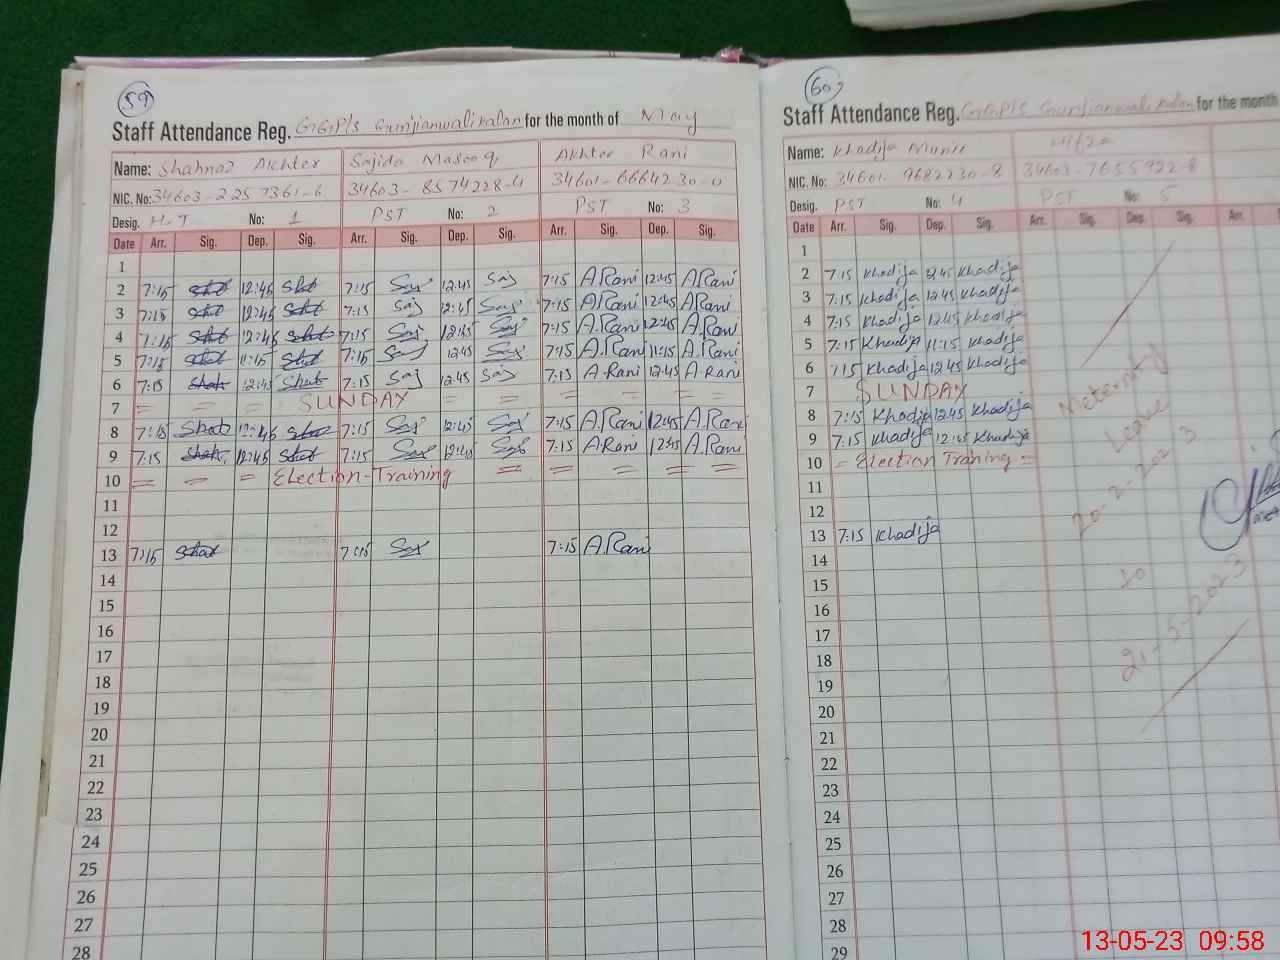 59
Staff Attendance Reg. G.G.P/S Gunjianwali Kalan for the month of May
Name: Shahnaz Akhter Sajida Masooq Akhter Rani
NIC. No: 34603-2257361-6 34603-8574228-4 34601-6664230-0
Desig. H.T No: 1 PST No: 2 PST No: 3
Date Arr. Sig. Dep. Sig. Arr. Sig. Dep. Sig. Arr. Sig. Dep. Sig.
1
2 7:15 12:45 7:15 Saj 12:45 Saj 7:15 A.Rani 12:45 A.Rani
3 7:15 12:45 7:15 Saj 12:45 Saj 7:15 A.Rani 12:45 A.Rani
4 7:15 12:45 7:15 Saj 12:45 Saj 7:15 A.Rani 12:45 A.Rani
5 7:15 11:15 7:15 Saj 12:45 Saj 7:15 A.Rani 11:15 A.Rani
6 7:15 12:45 7:15 Saj 12:45 Saj 7:15 A.Rani 12:45 A.Rani
7 = = = SUNDAY = = = = = =
8 7:15 12:45 7:15 Saj 12:45 Saj 7:15 A.Rani 12:45 A.Rani
9 7:15 12:45 7:15 Saj 12:45 Saj 7:15 A.Rani 12:45 A.Rani
10 = = = Election-Training = = = = =
11
12
13 7:15 7:15 Saj 7:15 A.Rani
14
15
16
17
18
19
20
21
22
23
24
25
26
27
28
60
Staff Attendance Reg. G.G.P/S Gunjianwali Kalan for the month
Name: Khadija
NIC. No: 34601-9682230-8 34603-7655922-8
Desig. PST No: 4 PST No: 5
Date Arr. Sig. Dep. Sig. Arr. Sig. Dep. Sig. Arr. Sig.
1
2 7:15 Khadija 12:45 Khadija
3 7:15 Khadija 12:45 Khadija
4 7:15 Khadija 12:45 Khadija
5 7:15 Khadija 11:15 Khadija
6 7:15 Khadija 12:45 Khadija
7 SUNDAY
8 7:15 Khadija 12:45 Khadija
9 7:15 Khadija 12:45 Khadija
10 = Election Training =
11
12
13 7:15 Khadija
14
15
16
17
18
19
20
21
22
23
24
25
26
27
28
29
Meternity
Leave
20-2-2023
to
21-5-2023
13-05-23 09:58